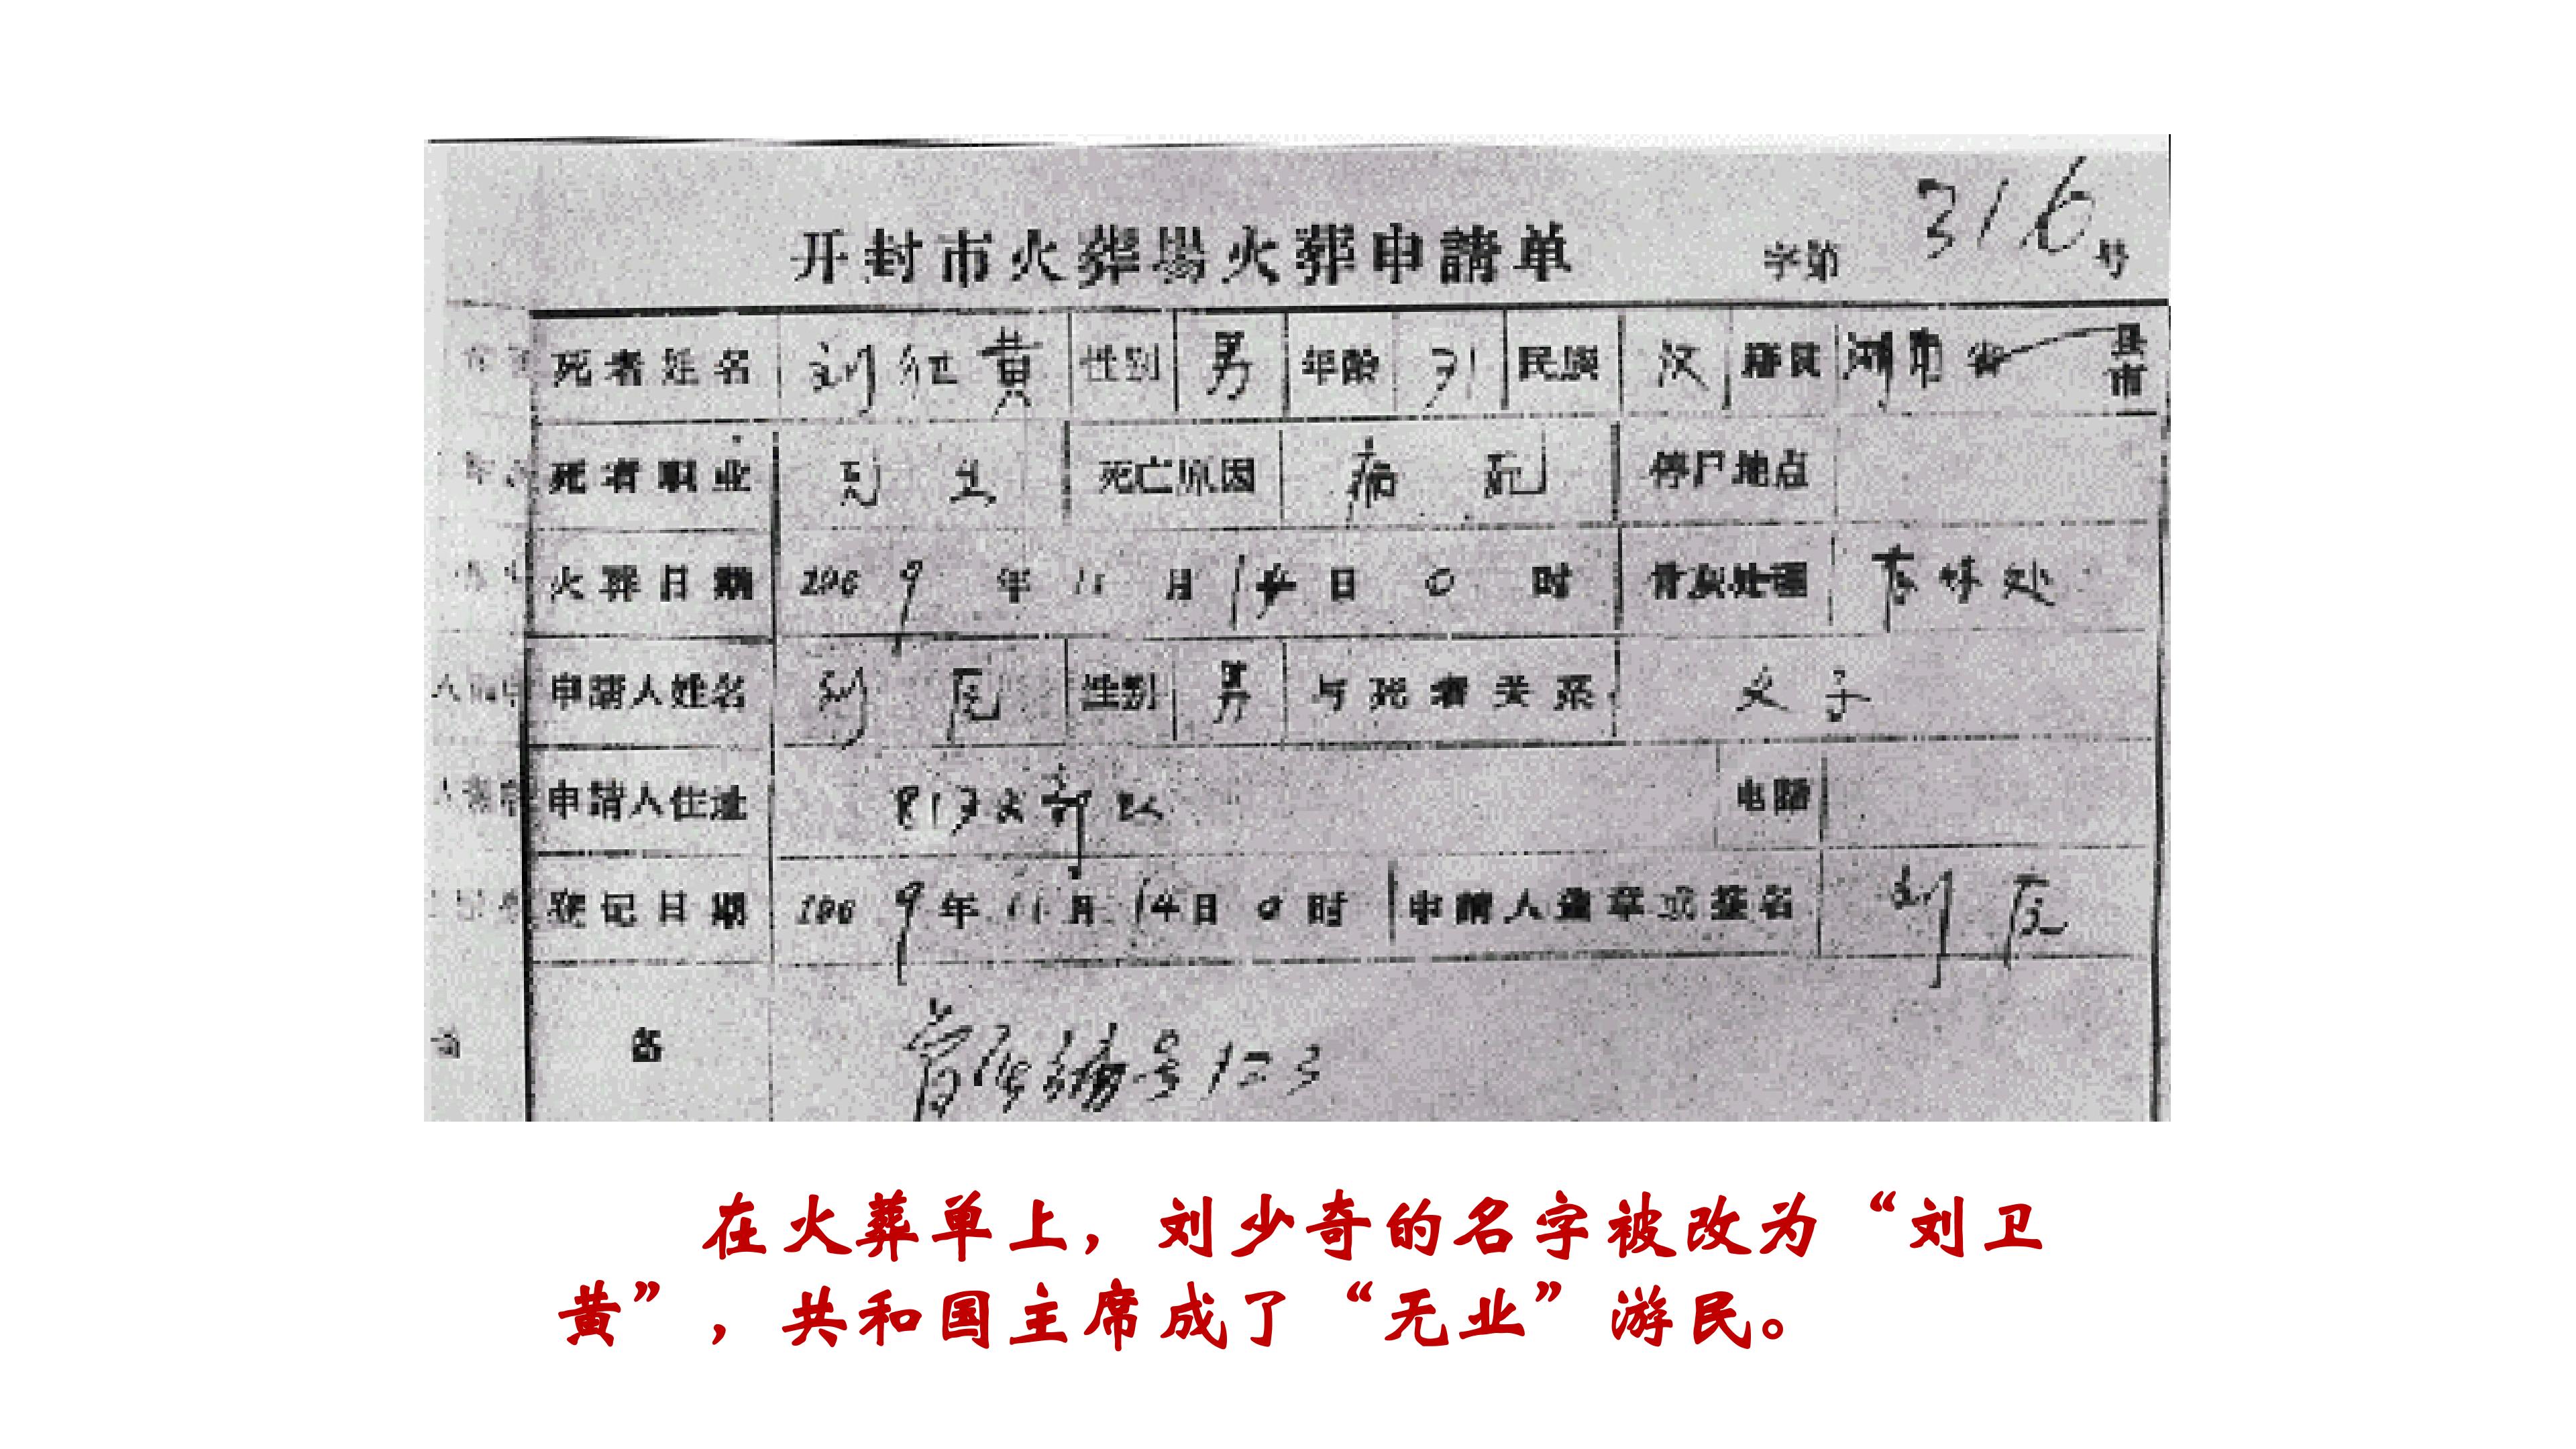 开封市火葬場火葬申請单 字第 316 号
死者姓名 刘卫黄 性别 男 年龄 71 民族 汉 籍贯 湖南省 县市
死者职业 无业 死亡原因 病死 停尸地点
火葬日期 1969年11月14日0时 骨灰处理
申请人姓名 刘原 性别 男 与死者关系 父子
申请人住址 部队 电话
登记日期 1969年11月14日0时 申請人盖章或签名 刘原
编号123
在火葬单上，刘少奇的名字被改为“刘卫
黄”，共和国主席成了“无业”游民。